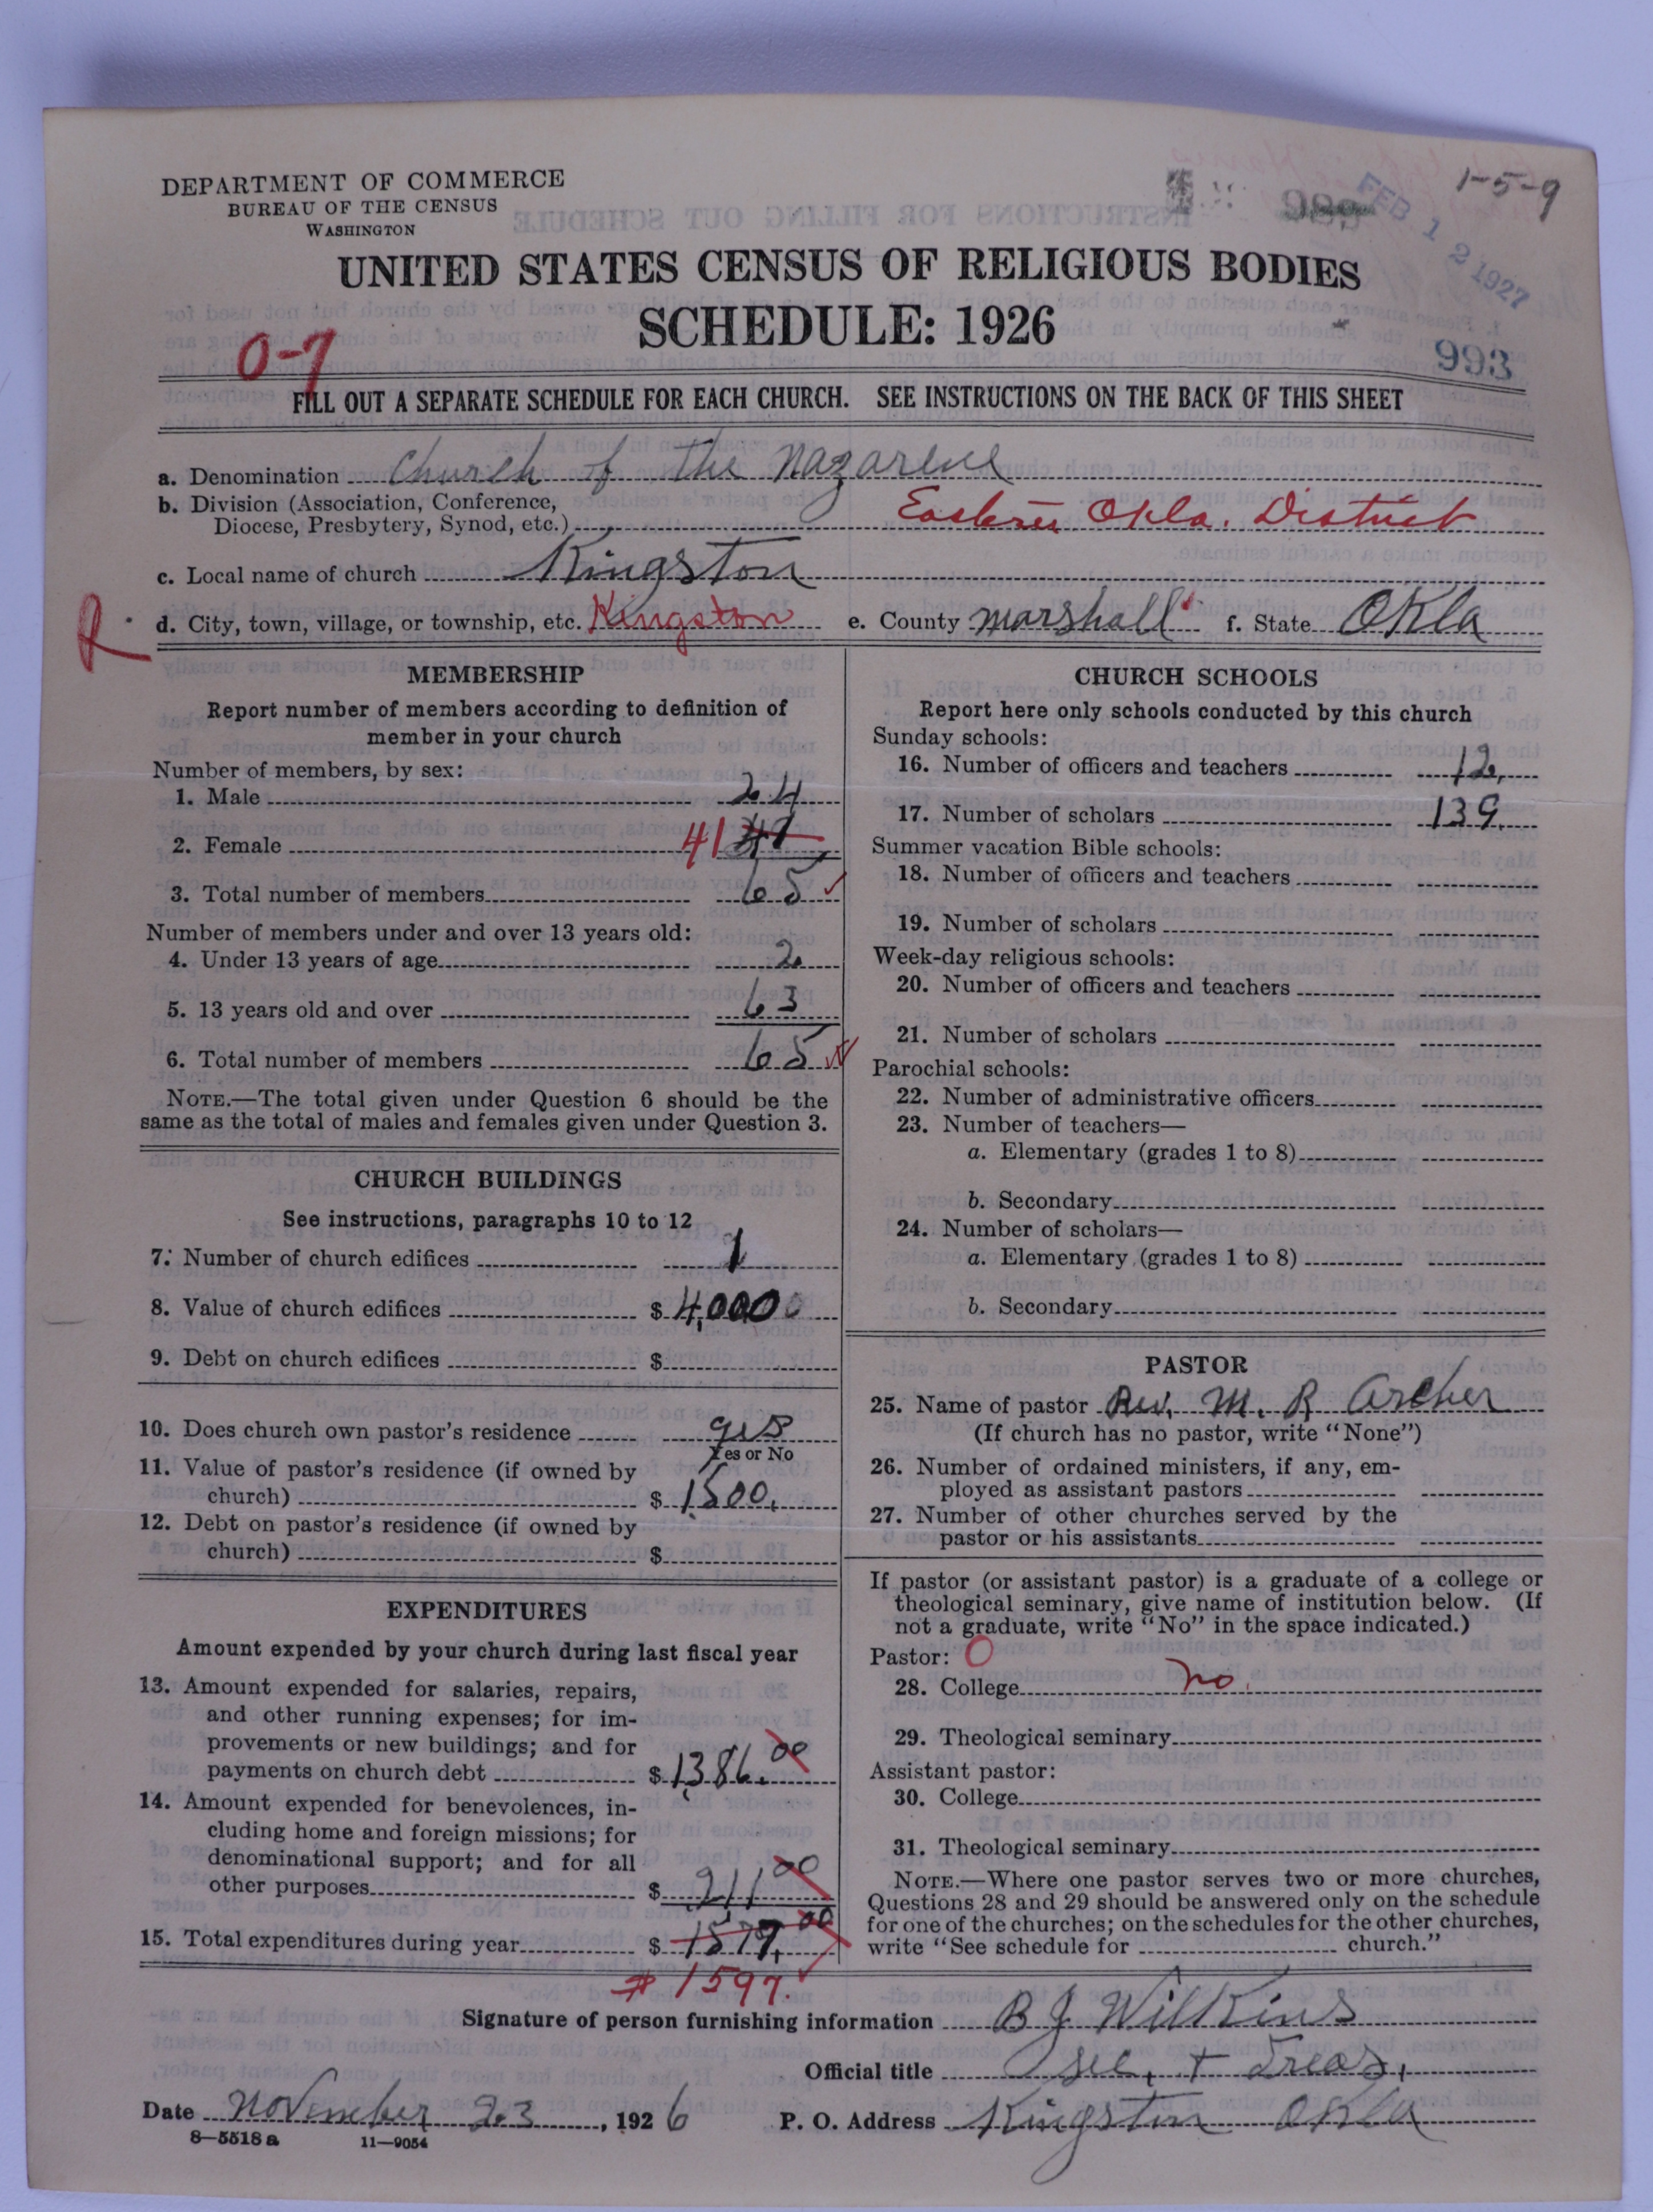 1-5-9
DEPARTMENT OF COMMERCE
BUREAU OF THE CENSUS
WASHINGTON
FEB 12 1927
UNITED STATES CENSUS OF RELIGIOUS BODIES
SCHEDULE: 1926
0-7
993
FILL OUT A SEPARATE SCHEDULE FOR EACH CHURCH. SEE INSTRUCTIONS ON THE BACK OF THIS SHEET
a. Denomination Church of the Nazarene
b. Division (Association, Conference,
Diocese, Presbytery, Synod, etc.) Eastern Okla. District
c. Local name of church Kingston
R d. City, town, village, or township, etc. Kingston e. County Marshall f. State Okla
MEMBERSHIP
Report number of members according to definition of
member in your church
Number of members, by sex:
1. Male 24
2. Female 41
3. Total number of members 65
Number of members under and over 13 years old:
4. Under 13 years of age 2
5. 13 years old and over 63
6. Total number of members 65
NOTE.—The total given under Question 6 should be the
same as the total of males and females given under Question 3.
CHURCH BUILDINGS
See instructions, paragraphs 10 to 12
7. Number of church edifices 1
8. Value of church edifices $ 4,000
9. Debt on church edifices $
10. Does church own pastor's residence yes
Yes or No
11. Value of pastor's residence (if owned by
church) $ 1500.
12. Debt on pastor's residence (if owned by
church) $
EXPENDITURES
Amount expended by your church during last fiscal year
13. Amount expended for salaries, repairs,
and other running expenses; for im-
provements or new buildings; and for
payments on church debt $ 1,386.00
14. Amount expended for benevolences, in-
cluding home and foreign missions; for
denominational support; and for all
other purposes $ 211 00
15. Total expenditures during year $ 1577.00
$1597.
CHURCH SCHOOLS
Report here only schools conducted by this church
Sunday schools:
16. Number of officers and teachers 12
17. Number of scholars 139
Summer vacation Bible schools:
18. Number of officers and teachers
19. Number of scholars
Week-day religious schools:
20. Number of officers and teachers
21. Number of scholars
Parochial schools:
22. Number of administrative officers
23. Number of teachers—
a. Elementary (grades 1 to 8)
b. Secondary
24. Number of scholars—
a. Elementary (grades 1 to 8)
b. Secondary
PASTOR
25. Name of pastor Rev. M. R Archer
(If church has no pastor, write "None")
26. Number of ordained ministers, if any, em-
ployed as assistant pastors
27. Number of other churches served by the
pastor or his assistants
If pastor (or assistant pastor) is a graduate of a college or
theological seminary, give name of institution below. (If
not a graduate, write "No" in the space indicated.)
Pastor: 0
28. College no.
29. Theological seminary
Assistant pastor:
30. College
31. Theological seminary
NOTE.—Where one pastor serves two or more churches,
Questions 28 and 29 should be answered only on the schedule
for one of the churches; on the schedules for the other churches,
write "See schedule for church."
Signature of person furnishing information B J Wilkins
Official title Sec. + Treas.
Date November 23, 1926 P. O. Address Kingston Okla
8—5518a 11—9054